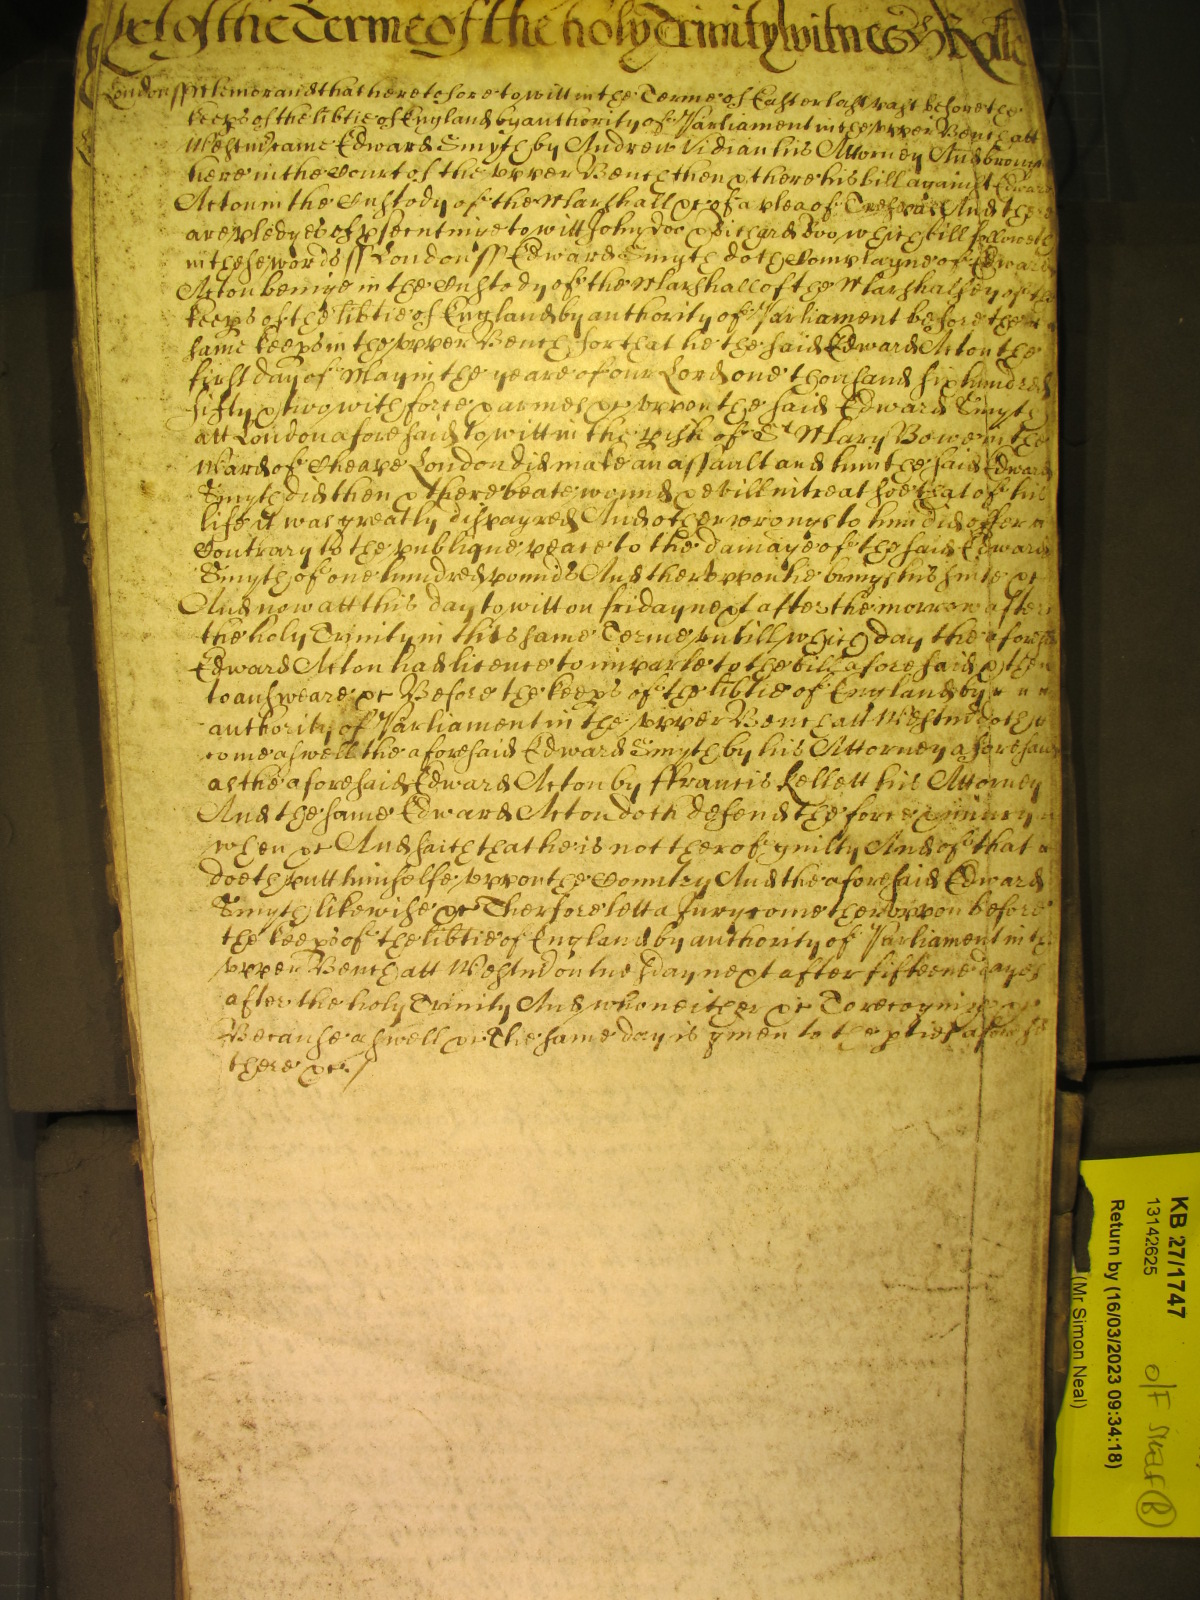 Yet of the Terme of the holy Trinity witnes H Rolle
London ss Memorand that heretofore to witt in the Terme of Easter last past before the
keeps of the libtie of England by authority of Parliament in the upper Bench att
Westm came Edward Smyth by Andrew Vidian his Attorney And brought
here in the Court of the upper Bench then & there his bill against Edward
Acton in the Custody of the Marshall &c of a plea of Trespas And there
are pledges of psecuting to witt John Doo & Richard Roo which bill followeth
in these words ss London ss Edward Smyth doth Complayne of Edward
Acton being in the Custody of the Marshall of the Marshalsey of the
keeps of the libtie of England by authority of Parliament before the
same keeps in the upper Bench for that he the said Edward Acton the
first day of May in the yeare of our Lord one thousand six hundred
fifty & two with force & armes &c uppon the said Edward Smyth
att London aforesaid to witt in the pish of St Mary Bowe in the
Ward of Cheape London did make an assault and him the said Edward
Smyth did then & there beate wound & evill intreat soe that of his
life it was greatly dispayred And other wrongs to him did offer
Contrary to the publique peace to the damage of the said Edward
Smyth of one hundred pounds And theruppon he brings his suite &c
And now att this day to witt on friday next after the morrow after
the holy Trinity in this same Terme untill which day the aforesaid
Edward Acton had licence to imparle to the bill aforesaid & then
to answeare &c Before the keeps of the libtie of England by
authority of Parliament in the upper Bench att Westm doth
come aswell the aforesaid Edward Smyth by his Attorney aforesaid
as the aforesaid Edward Acton by ffrancis Kellett his Attorney
And the same Edward Acton doth defend the force & iniury
when &c And saith that he is not therof guilty And of that
doeth putt himselfe uppon the Country And the aforesaid Edward
Smyth likewise &c Therfore lett a Jury come theruppon before
the keeps of the libtie of England by authority of Parliament in the
upper Bench att Westm on tuesday next after fifteene dayes
after the holy Trinity And who neither &c To recognize &c
Because aswell &c The same day is given to the pties aforesd
there &c
KB 27/1747
13142625
Return by (16/03/2023 09:34:18)
(Mr Simon Neal)
O/F